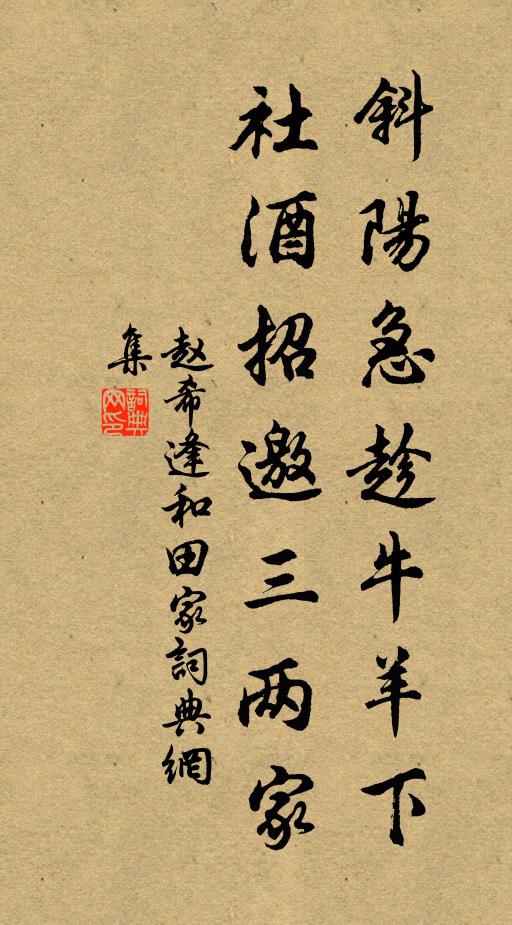 斜陽急趁牛羊下
社酒招邀三两家
赵希逢和田家詞典網
集
詞典网印